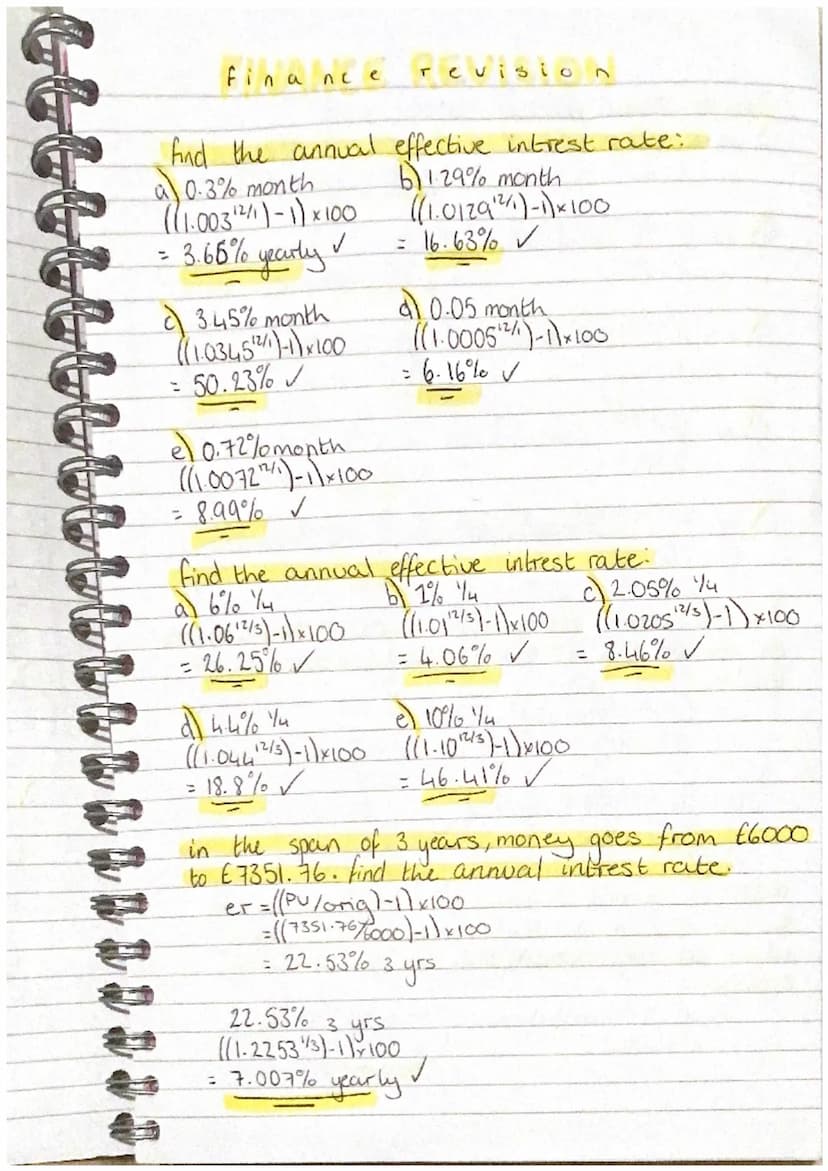 finance revision
find the annual effective intrest rate:
a) 0.3% month
((1.003^12/1)-1)×100
= 3.66% yearly ✓
b) 1.29% month
((1.0129^12/1)-1)×100
= 16.63% ✓
c) 3.45% month
((1.0345^12/1)-1)×100
= 50.23% ✓
d) 0.05 month
((1.0005^12/1)-1)×100
= 6.16% ✓
e) 0.72% month
((1.0072^12/1)-1)×100
= 8.99% ✓
find the annual effective intrest rate:
a) 6% 1/4
((1.06^12/3)-1)×100
= 26.25% ✓
b) 1% 1/4
((1.01^12/3)-1)×100
= 4.06% ✓
c) 2.05% 1/4
((1.0205^12/3)-1)×100
= 8.46% ✓
d) 4.4% 1/4
((1.044^12/3)-1)×100
= 18.8% ✓
e) 10% 1/4
((1.10^12/3)-1)×100
= 46.41% ✓
in the span of 3 years, money goes from £6000
to £7351.76. find the annual intrest rate.
er = ((PV/orig)-1)×100
= ((7351.76/6000)-1)×100
= 22.53% 3 yrs
22.53% 3 yrs
((1.2253^1/3)-1)×100
= 7.007% yearly ✓